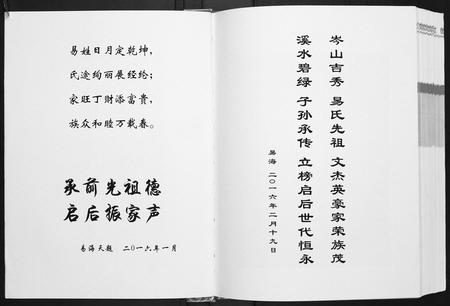 易姓日月定乾坤，
氏途绚丽展经纶；
家旺丁财添富贵，
族众和睦万载春。
承前先祖德
启后振家声
易海天题 二〇一六年一月
岑山吉秀 易氏先祖 文杰英豪家荣族茂
溪水碧绿 子孙承传 立榜启后世代恒永
易海 二〇一六年二月十九日